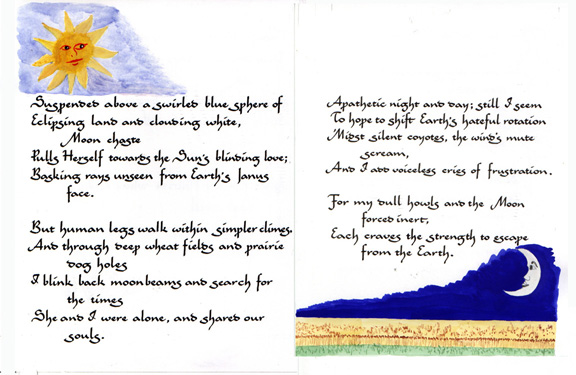 Suspended above a swirled blue sphere of
Eclipsing land and clouding white,
Moon chaste
Pulls Herself towards the Sun's blinding love;
Basking rays unseen from Earth's Janus
face.
But human legs walk within simpler climes.
And through deep wheat fields and prairie
dog holes
I blink back moonbeams and search for
the times
She and I were alone, and shared our
souls.
Apathetic night and day; still I seem
To hope to shift Earth's hateful rotation
Midst silent coyotes, the wind's mute
scream,
And I add voiceless cries of frustration.
For my dull howls and the Moon
forced inert,
Each craves the strength to escape
from the Earth.